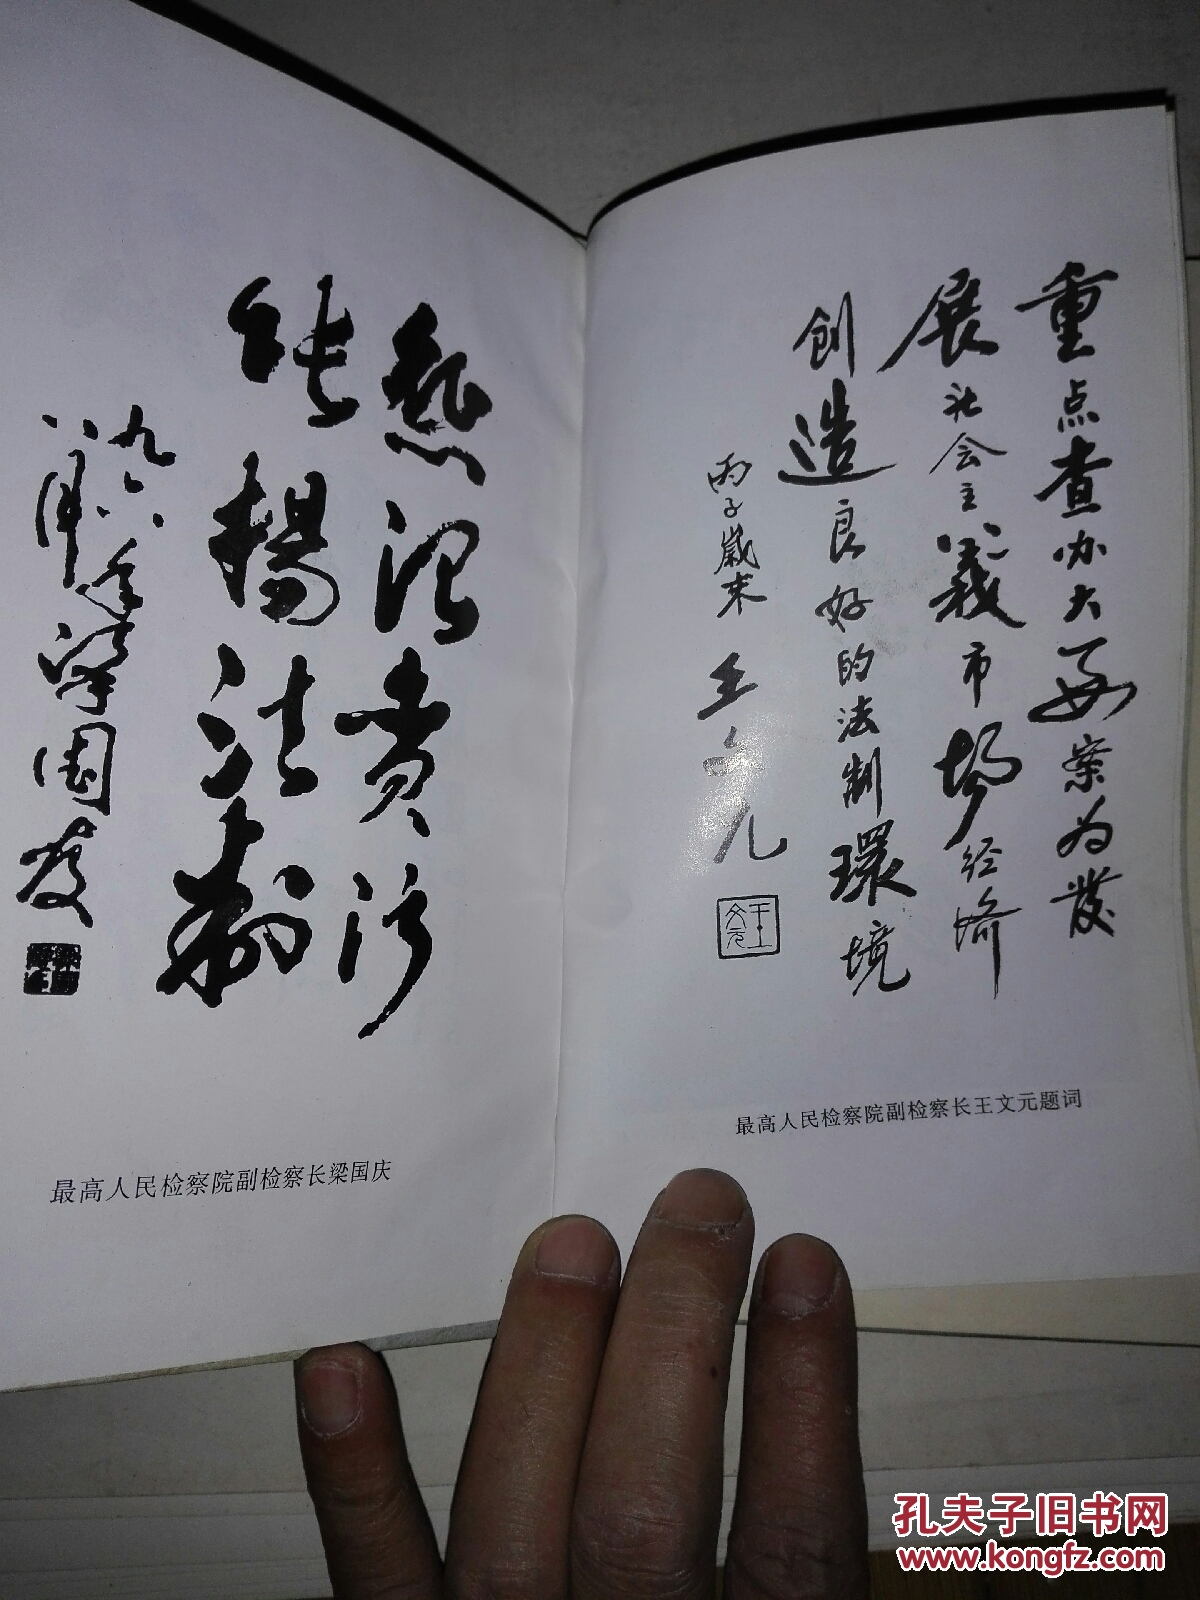 重点查办大要案为發
展社会主義市場经济
創造良好的法制環境
丙子歲末 王文元
王文元
最高人民检察院副检察长王文元题词
惩治贪污
张揚法制
九六年
八月梁国庆
最高人民检察院副检察长梁国庆
孔夫子旧书网
www.kongfz.com